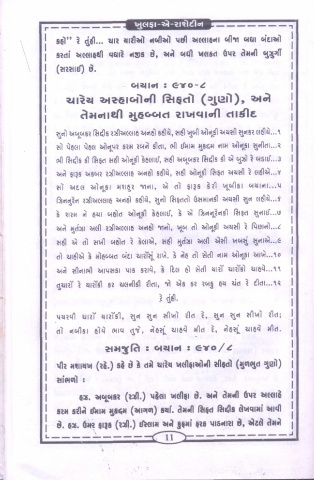 ખુલફા-એ-રાશેદીન
કહો" રે તુંહી... ચાર યારીઓ નબીઓ પછી અલ્લાહના બીજા બધા બંદાઓ
કરતાં અલ્લાહથી વધારે નજીક છે, અને બધી ખલકત ઉપર તેમની બુઝુર્ગી
(સરસાઈ) છે.
બયાન : ૯૪૦-૮
ચારેય અસ્હાબોની સિફતો (ગુણો), અને
તેમનાથી મુહબ્બત રાખવાની તાકીદ
સુનો અબૂબકર સિદીક રઝીઅલ્લાહ અન્હો કહીયે, સહી ખુબી ઓનૂકી અયસી સુનકર લહીયે...૧
સો પેહલા પેહલ ઓનૂપર કરમ રબને કીતા, ભી ઈમામ મુકદ્દમ નામ ઓનૂકા સુનીતા...૨
ભી સિદીક કી સિફત સહી ઓનૂકી કેહલાઈ, સહી અબૂબકર સિદીક કી એ બુઝો રે બડાઈ...૩
અને ફારૂક અકબર રઝીઅલ્લાહ અન્હો કહીયે, સહી ઓનૂકી સિફત અયસી રે લહીએ...૪
સો અદલ ઓનૂકા મશહૂર જાના, એ તો ફારૂક કેરી ખૂબીકા બયાના...૫
ઝિનનૂરેન રઝીઅલ્લાહ અન્હો કહીયે, સુનો સિફતતો ઉસમાનકી અયસી સુન લહીયે...૬
કે શરમ ને હયા બહોત ઓનૂકી કેહલાઈ, કે એ ઝિનનૂરેનકી સિફત સુનાઈ ...૭
અને મુર્તઝા અલી રઝીઅલ્લાહ અન્હો જાનો, ખૂબ તો ઓનૂકી અયસી રે પિછાનો...૮
સહી એ તો સખી બહોત રે કેલાએ, સહી મુર્તઝા અલી એસી ખબસું સુનાએ...૯
તો ચાહીએ કે મોહબ્બત બંદા ચારોંસું રાખે, કે નેહ તો સેતી નામ ઓનૂકા આખે...૧૦
અને સીનાભી આપસકા પાક કરાવે, કે દિલ હો સેતી ચારોં ચારોંકી ચાહવે...૧૧
તુચારોં રે ચારોંકી કર ચલનીકી રીતા, જો એક કર રબકુ હય ચંત રે દીતા...૧૨
રે તુંહી.
પચરવી ચારોં ચારોંકી, સુન સુન સીખો રીત રે, સુન સુન સીખો રીત;
તો નબીકા હોવે ભાવ તુજે, નેહસૂં ચાહવે મીત રે, નેહસૂં ચાહવે મીત.
સમજુતિ : બયાન : ૯૪૦/૮
પીર મશાયખ (રહે.) કહે છે કે તમે ચારેય ખલીફાઓની સીફતો (મુળભુત ગુણો)
સાંભળો :
હઝ. અબૂબકર (રઝી.) પહેલા ખલીફા છે. અને તેમની ઉપર અલ્લાહે
કરમ કરીને ઈમામ મુકદ્દમ (આગળ) કર્યા. તેમની સિફત સિદીક લેખવામાં આવી
છે. હઝ. ઉમર ફારૂક (રઝી.) ઈસ્લામ અને કુફ્રમાં ફરક પાડનારા છે, એટલે તેમને
11